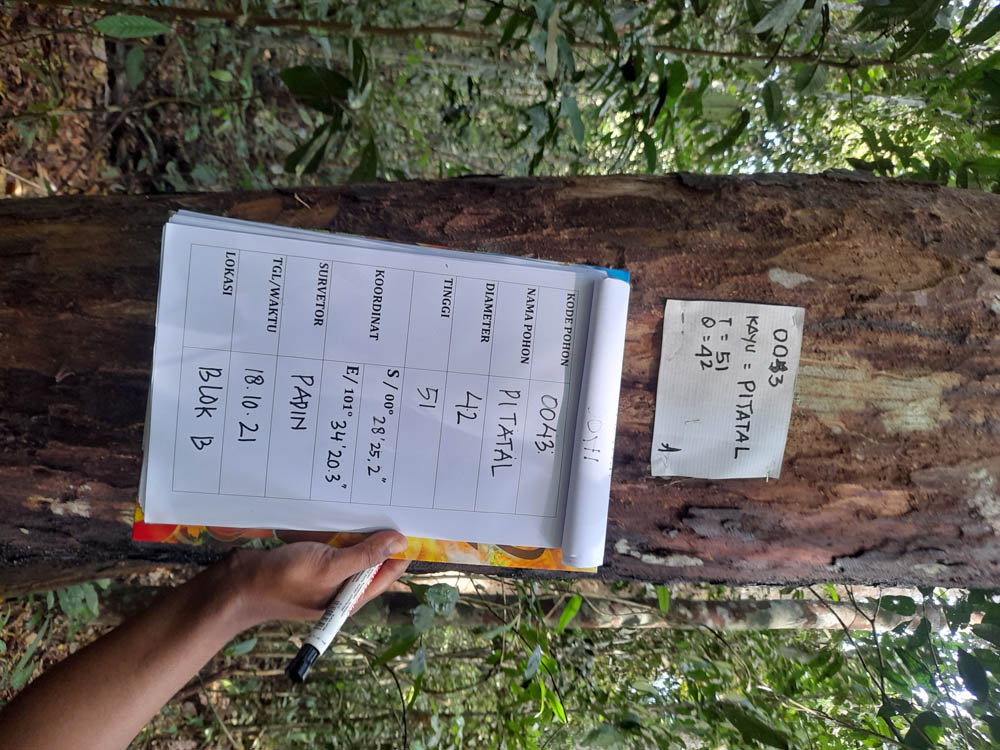 0043
KAYU = PITATAL
T = 51
Q = 42
A
KODE POHON 0043
NAMA POHON PITATAL
DIAMETER 42
TINGGI 51
KOORDINAT S / 00° 28'25,2"
E/ 101° 34'20.3"
SURVETOR PADIN
TGL/WAKTU 18.10.21
LOKASI BLOK B